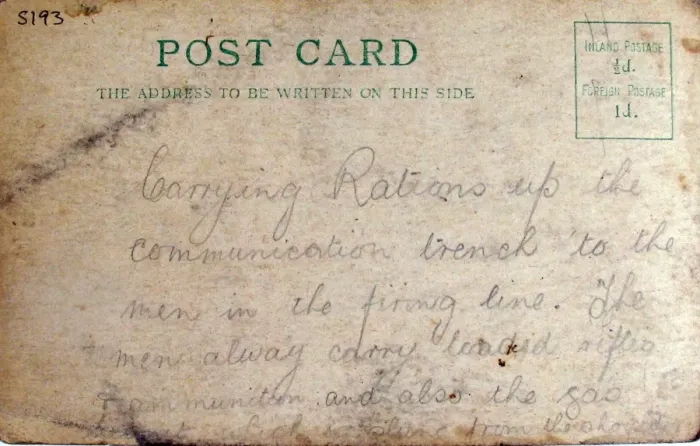 S193
POST CARD
THE ADDRESS TO BE WRITTEN ON THIS SIDE
INLAND POSTAGE
½d.
FOREIGN POSTAGE
1d.
Carrying Rations up the
communication trench to the
men in the firing line. The
men alway carry loaded rifles
+ ammunition and also the gas
which is from the